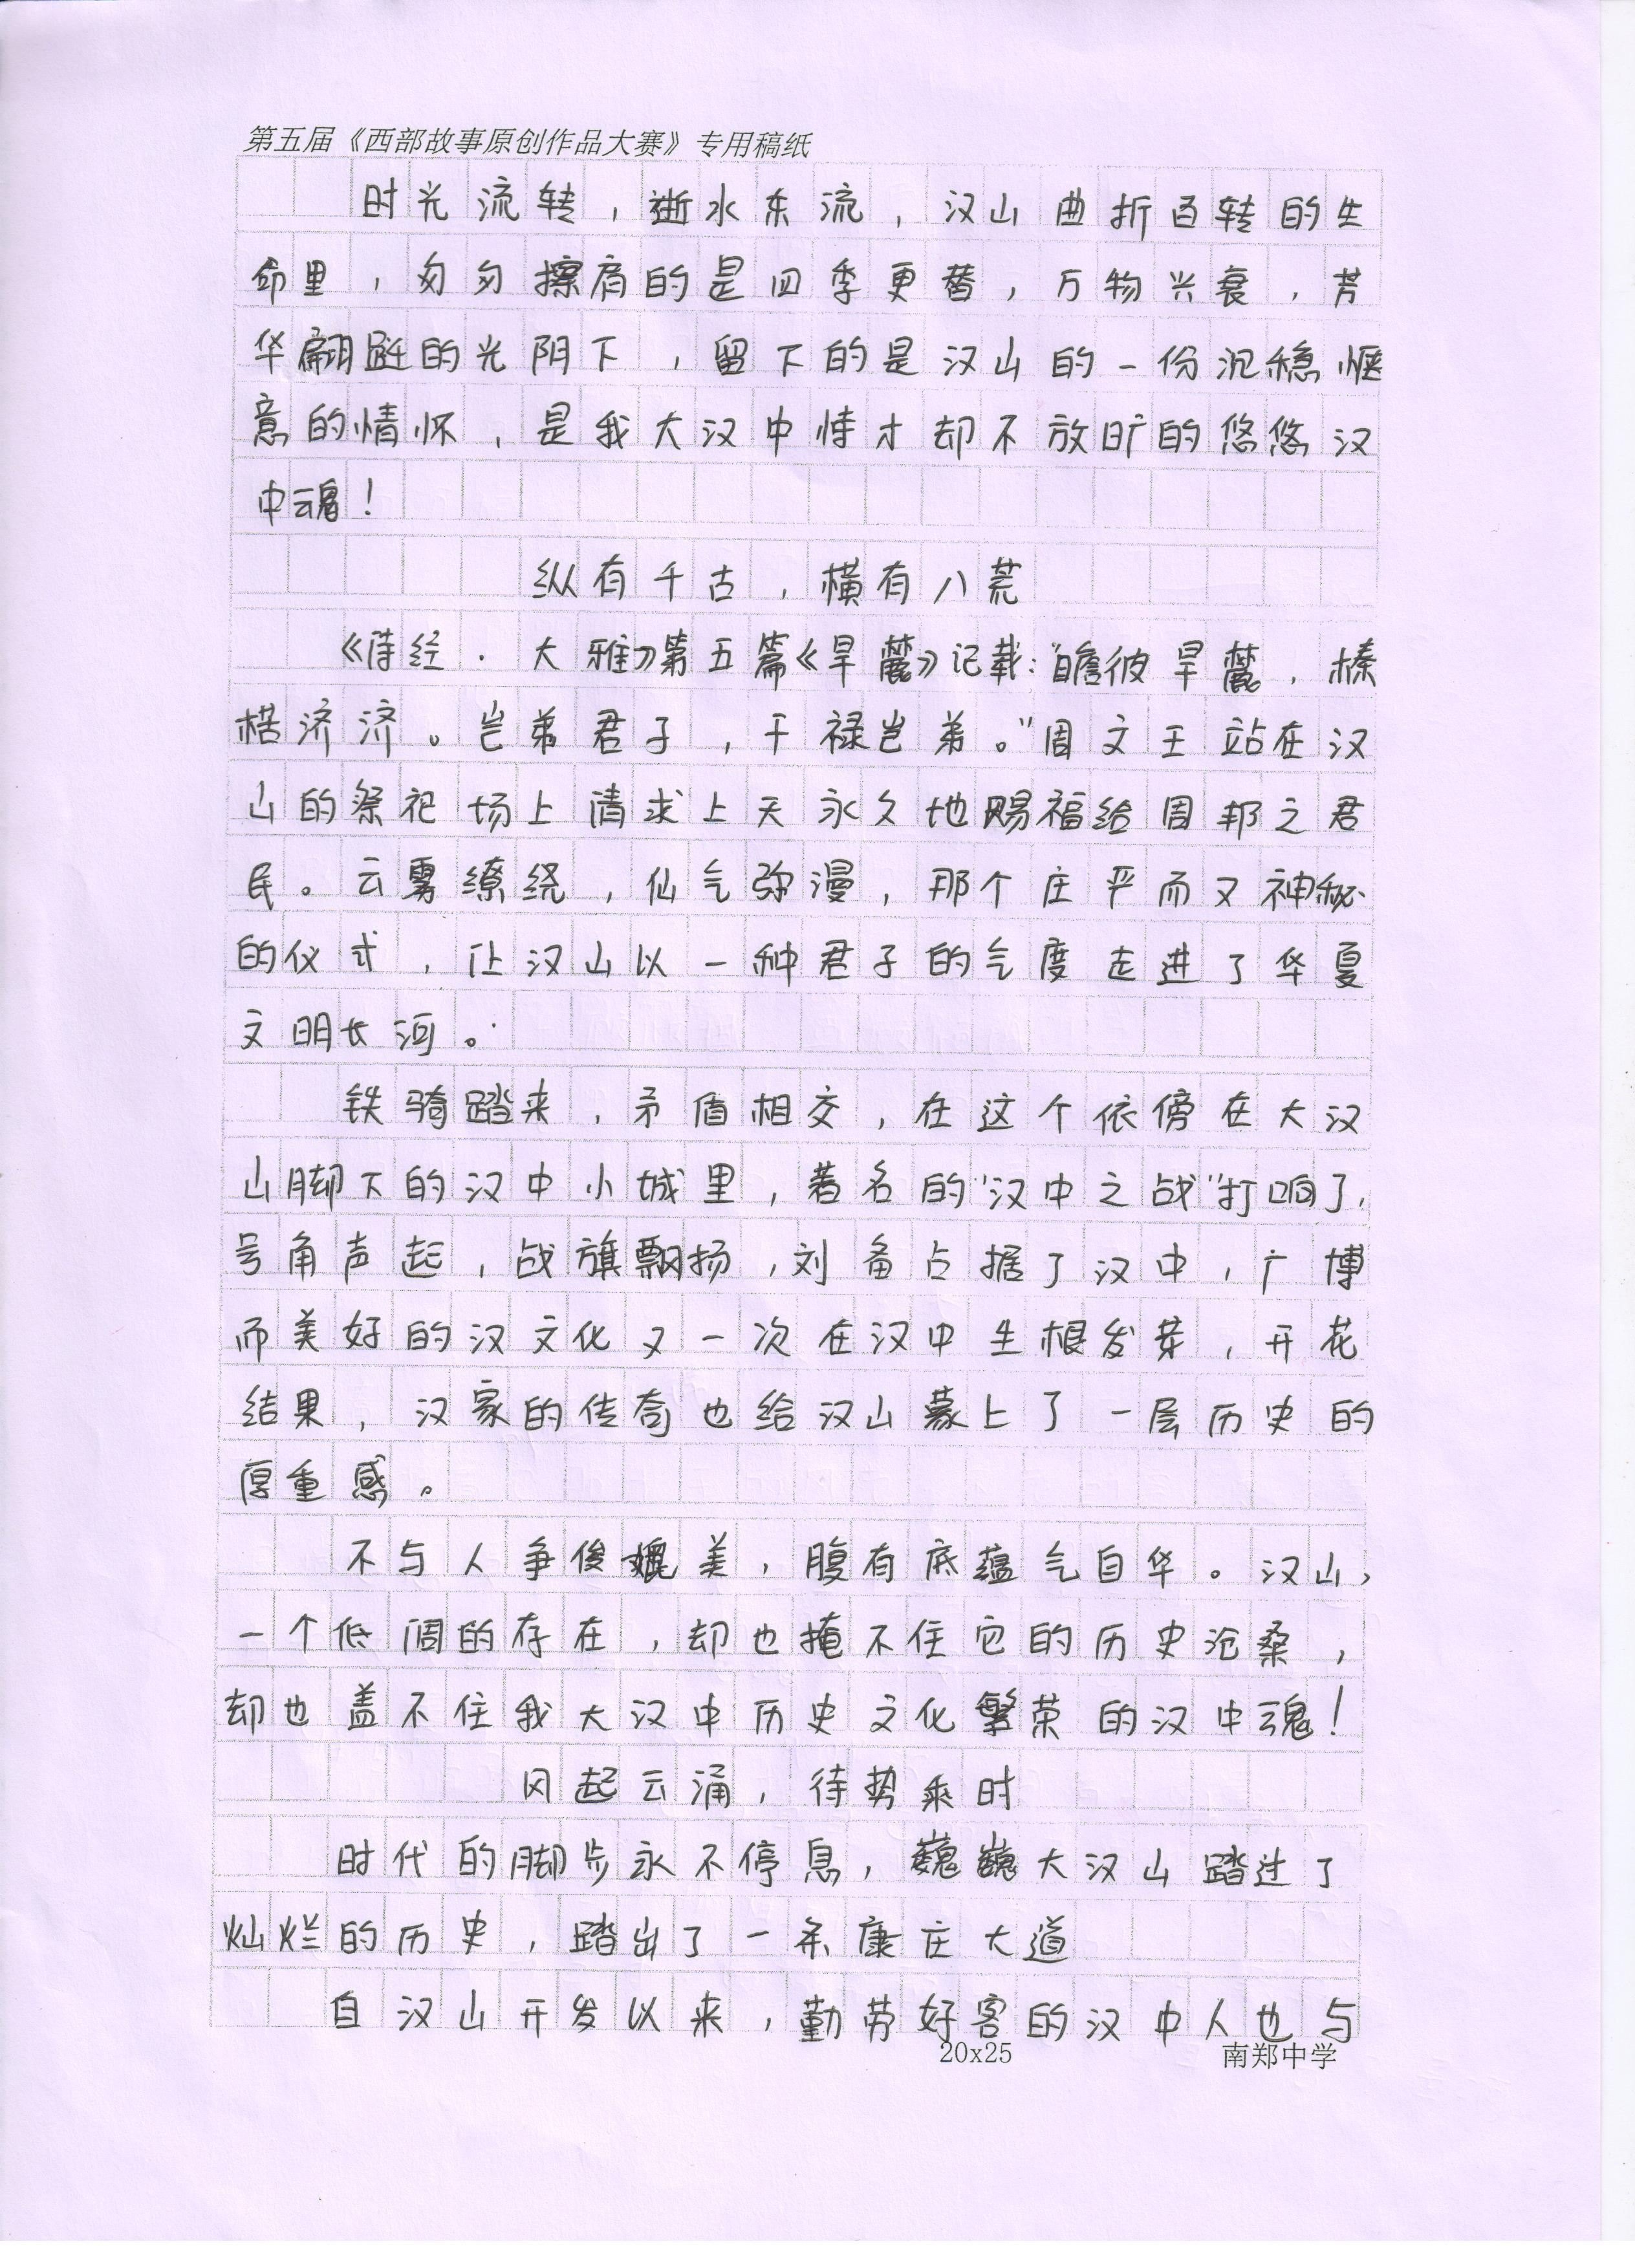 第五届《西部故事原创作品大赛》专用稿纸
时光流转，逝水东流，汉山曲折百转的生
命里，匆匆擦肩的是四季更替，万物兴衰，芳
华翩跹的光阴下，留下的是汉山的一份沉稳惬
意的情怀，是我大汉中恃才却不放旷的悠悠汉
中魂！
纵有千古，横有八荒
《诗经·大雅》第五篇《旱麓》记载：“瞻彼旱麓，榛
楛济济。岂弟君子，干禄岂弟。”周文王站在汉
山的祭祀场上请求上天永久地赐福给周邦之君
民。云雾缭绕，仙气弥漫，那个庄严而又神秘
的仪式，让汉山以一种君子的气度走进了华夏
文明长河。
铁骑踏来，矛盾相交，在这个依傍在大汉
山脚下的汉中小城里，著名的“汉中之战”打响了，
号角声起，战旗飘扬，刘备占据了汉中，广博
而美好的汉文化又一次在汉中生根发芽，开花
结果，汉家的传奇也给汉山蒙上了一层历史的
厚重感。
不与人争俊媲美，腹有底蕴气自华。汉山，
一个低调的存在，却也掩不住它的历史沧桑，
却也盖不住我大汉中历史文化繁荣的汉中魂！
风起云涌，待势乘时
时代的脚步永不停息，巍巍大汉山踏过了
灿烂的历史，踏出了一条康庄大道
自汉山开发以来，勤劳好客的汉中人也与
20x25 南郑中学